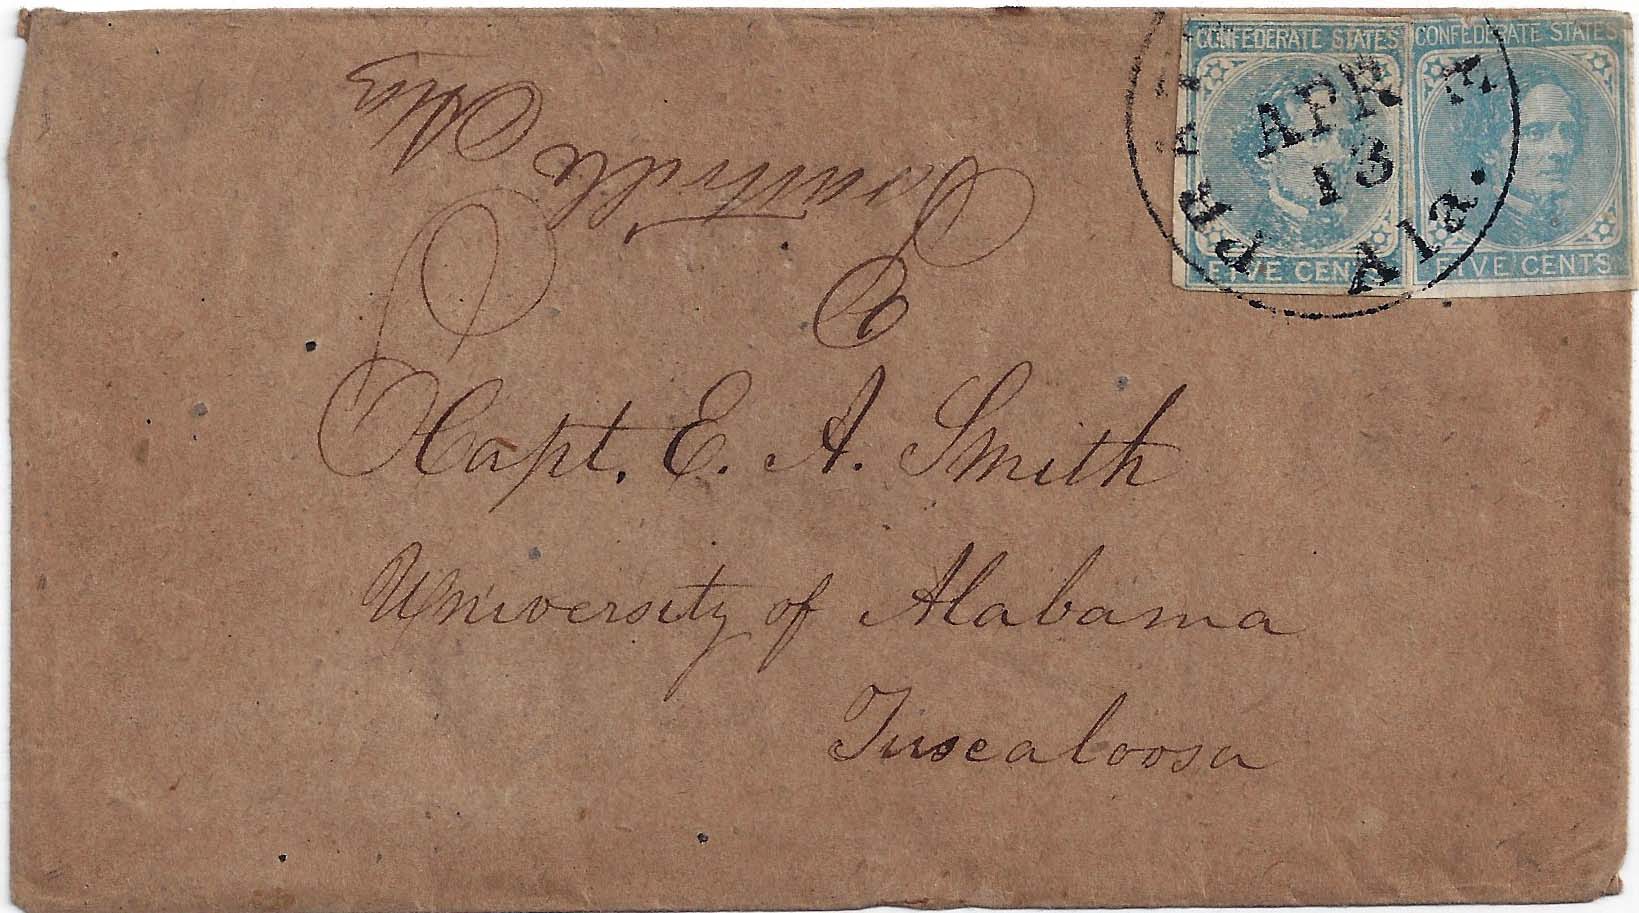 CONFEDERATE STATES
FIVE CENTS
CONFEDERATE STATES
FIVE CENTS
APR
13
Ala.
Capt. E. A. Smith
University of Alabama
Tuscaloosa